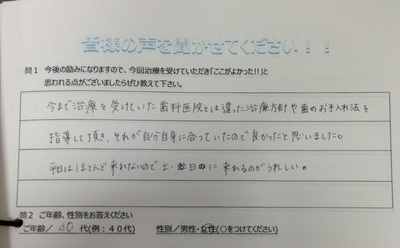 皆様の声を聞かせてください！！
問1 今後の励みになりますので、今回治療を受けていただき「ここがよかった!!」と
思われる点がございましたらぜひ教えて下さい。
今まで治療を受けていた歯科医院とは違った治療方針や歯のお手入れ法を
指導して頂き、それが自分自身に合っていたので良かったと思いました。
平日はほとんど来れないので土・日に来れるのがうれしい。
問2 ご年齢、性別をお答えください
ご年齢／ 30 代(例：40代) 性別／男性・女性(○をつけてください)